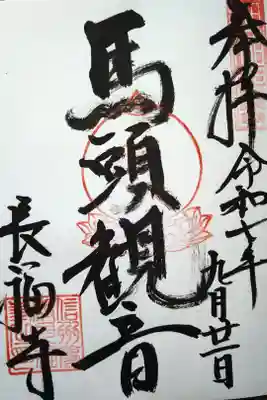 奉拝 令和七年九月廿一日
馬頭観音
長福寺
信州